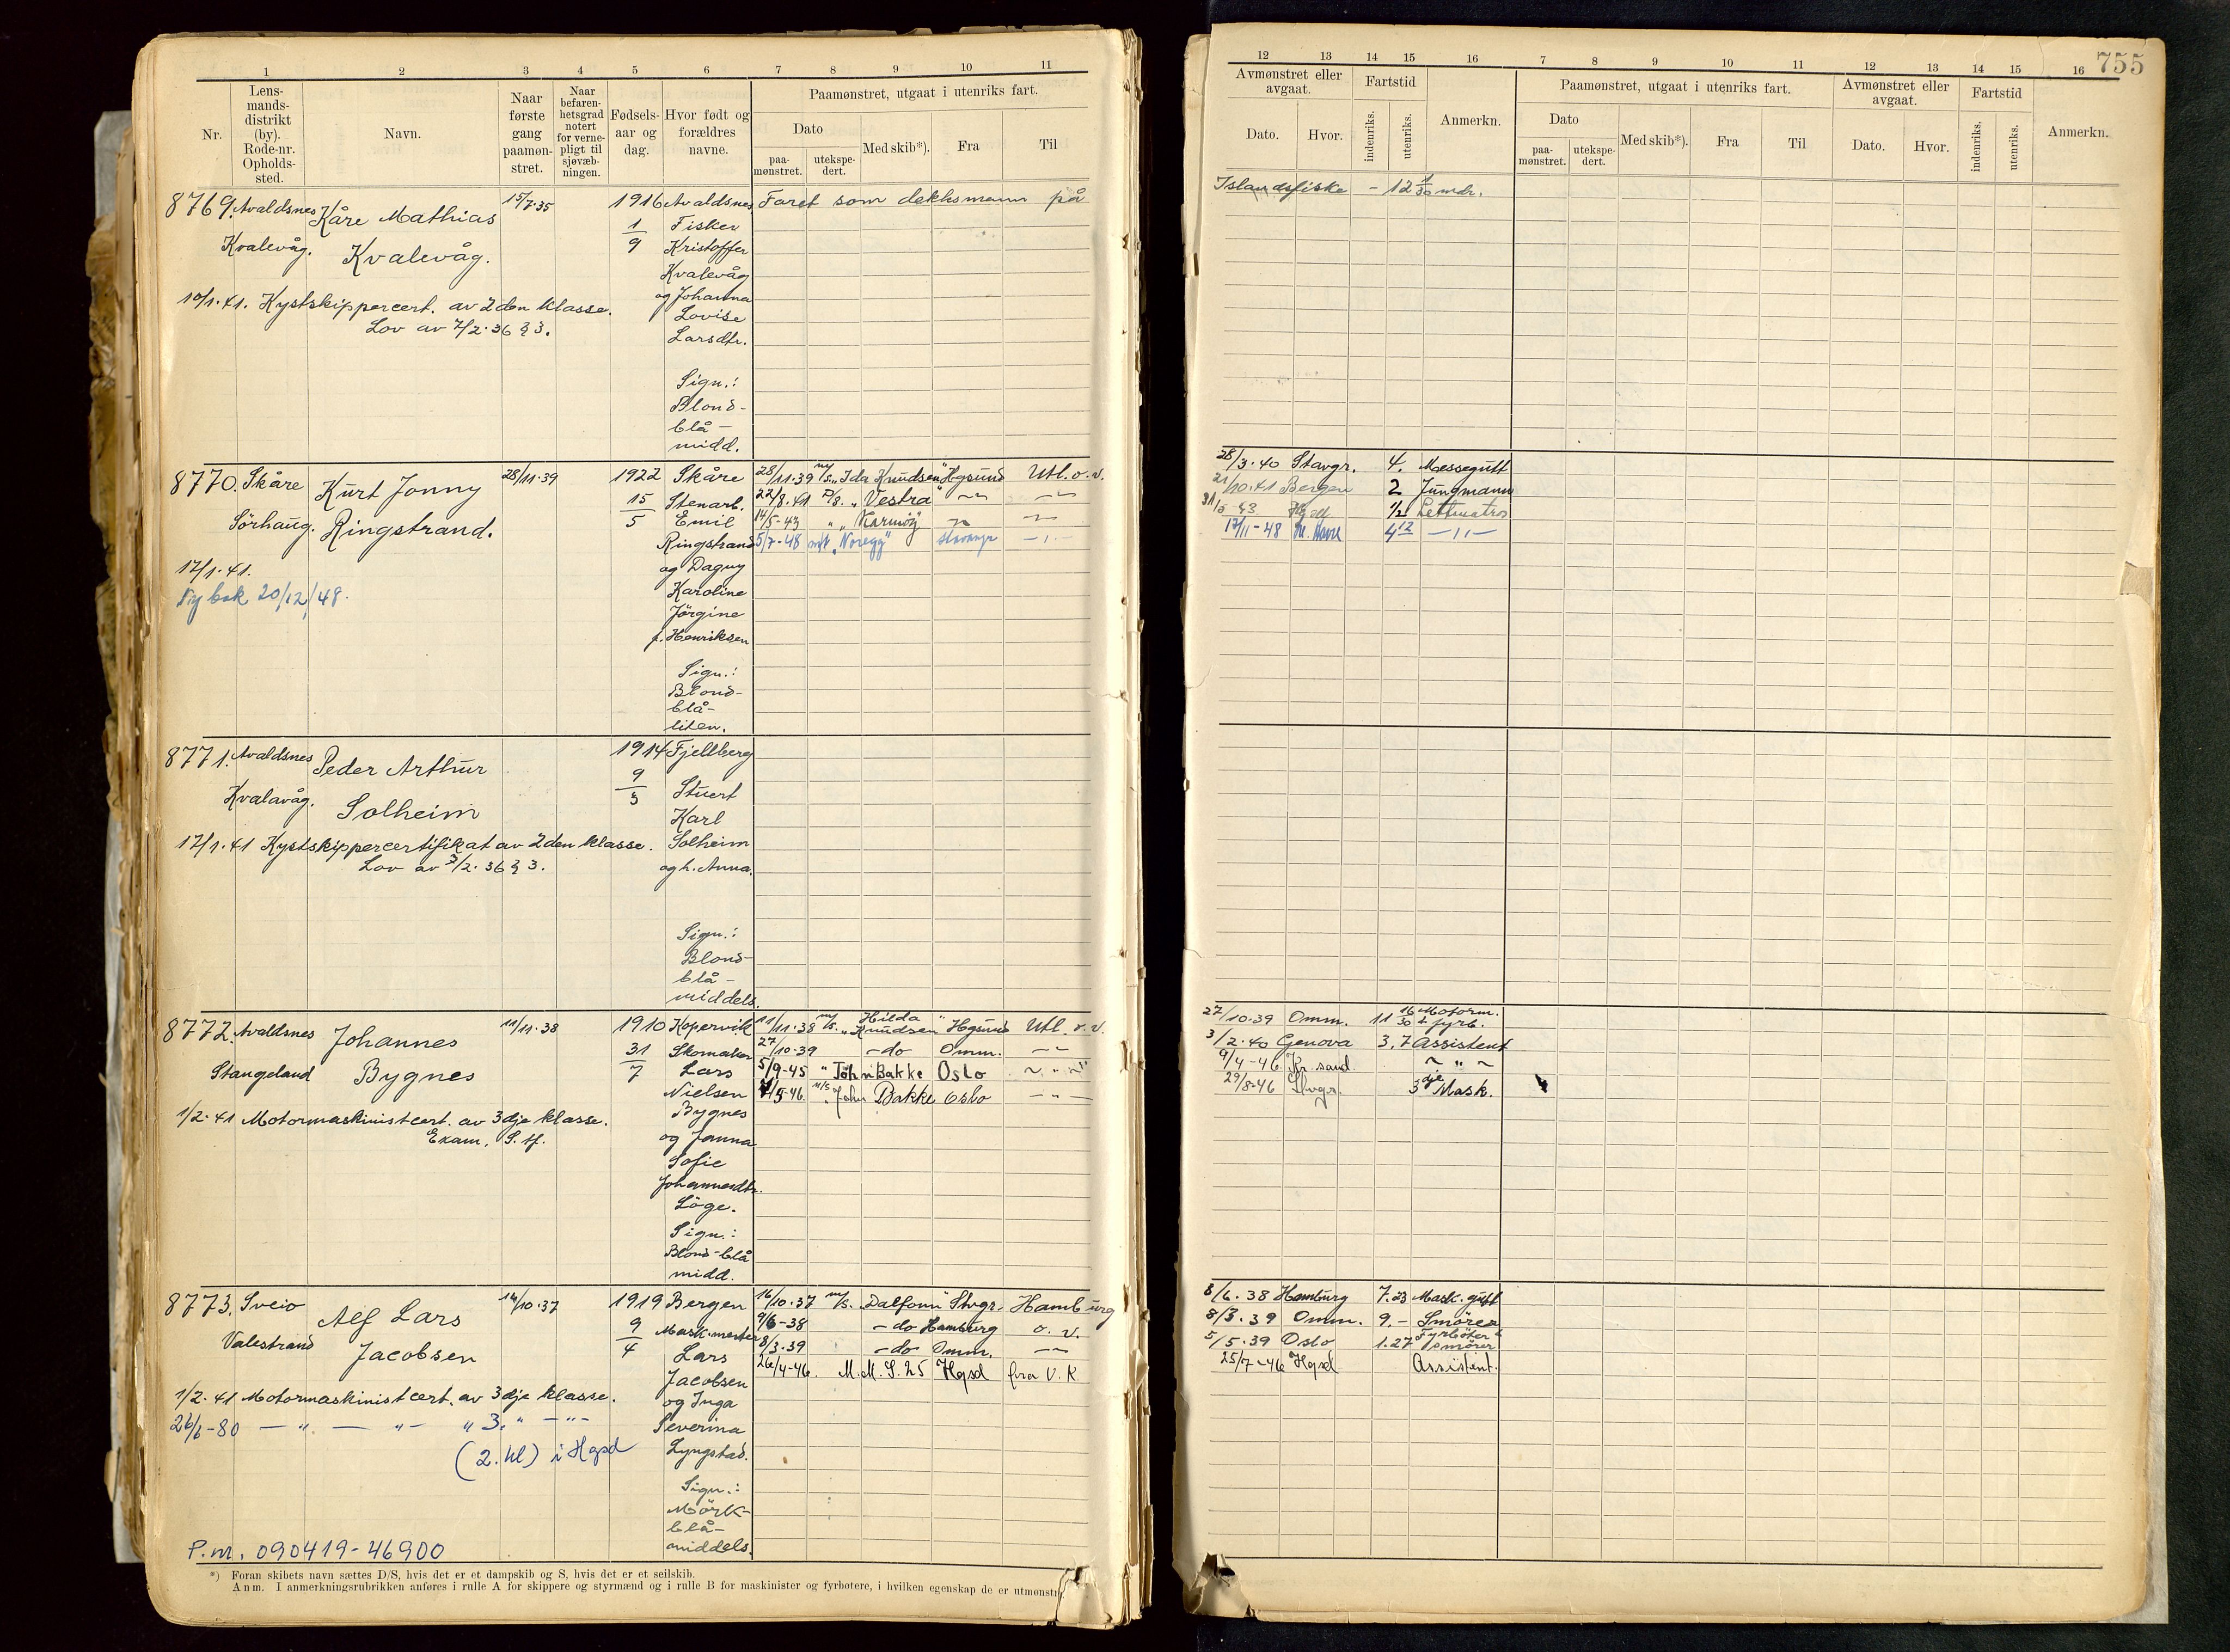 755
1 2 3 4 5 6 7 8 9 10 11
Nr.
Lens-
mands-
distrikt
(by).
Rode-nr.
Opholds-
sted.
Navn.
Naar
første
gang
paamøn-
stret.
Naar
befaren-
hetsgrad
notert
for verne-
pligt til
sjøvæb-
ningen.
Fødsels-
aar og
dag.
Hvor født og
forældres
navne.
Paamønstret, utgaat i utenriks fart.
Dato
paa-
mønstret.
utekspe-
dert.
Med skib*).
Fra
Til
12 13 14 15 16 7 8 9 10 11 12 13 14 15 16
Avmønstret eller
avgaat.
Dato. Hvor.
Fartstid
indenriks. utenriks.
Anmerkn.
Paamønstret, utgaat i utenriks fart.
Dato
paa-
mønstret.
utekspe-
dert.
Med skib*). Fra Til
Avmønstret eller
avgaat.
Dato. Hvor.
Fartstid
indenriks. utenriks.
Anmerkn.
8769. Avaldsnes Kåre Mathias 15/7.35 1916 Avaldsnes Faret som dekksmann på Islandsfiske - 12 1/30 mdr.
Kvalevåg. Kvalevåg. 1/9 Fisker
Kristoffer
Kvalevåg
og Johanna
Lovise
Larsdtr.
10/1.41. Kystskippercert. av 2den klasse.
Lov av 7/2.36 § 3.
Sign.:
Blond-
blå-
midd.
8770. Skåre Kurt Jonny 28/11.39 1922 Skåre 28/11.39 m/s. "Ida Knudsen" Hgsund Utl. o. v. 28/3.40 Stavgr. 4. Messegutt
15/5 Stenarb. 22/8.41 D/S. "Vestra" -"- -"- 21/10.41 Bergen 2 Jungmann
Sörhaug. Ringstrand. Emil 14/5-43 " "Karmöy" -"- -"- 31/5-43 1/2 Lettmatros
Ringstrand 5/7-48 m/t "Noregg" Stavangr -"- 17/11-48 Le Havre 4 12 -"-
17/1.41. og Dagny
Ny bok 20/12/48. Karoline
Jörgine
f. Henriksen
Sign.:
Blond-
blå-
liten.
8771. Avaldsnes Peder Arthur 1914 Fjellberg
Kvalavåg. Solheim 9/3 Stuert
Karl
17/1.41 Kystskippercertifikat av 2den klasse. Solheim
Lov av 7/2.36 § 3. og h. Anna.
Sign.:
Blond-
blå-
middels.
8772. Avaldsnes Johannes 11/11.38 1910 Kopervik 11/11.38 m/s. "Hilda Knudsen" Hgsund Utl. o. v. 27/10.39 Omm. 11 16/30 Motorm. + fyrb.
31/7 Skomaker 27/10.39 -do Omm. -"- 3/2.40 Genova 3.7 Assistent
Stangeland Bygnes Lars 5/9-45 " John Bakke Oslo -"- 9/4-46 Kr.sand -"-
Nielsen 4/5-46. M/S "John Bakke Oslo -"- 29/8-46 Stvgr. 3dje Mask.
Bygnes
1/2.41 Motormaskinistcert. av 3dje klasse. og Janna
Exam. S. H. Sofie
Johannesdtr.
Löge.
Sign.:
Blond-blå
midd.
8773. Sveio Alf Lars 14/10.37 1919 Bergen 16/10.37 m/s. "Dalfonn" Stvgr. Hamburg 8/6.38 Hamburg 7.23 Mask.gutt
9/4 Mask.mester 9/6-38 -do Hamburg o. v. 8/3.39 Omm. 9.- Smörer
Valestrand Jacobsen Lars 8/3.39 -do Omm. -"- 5/5.39 Oslo 1.27 Fyrböter & smörer
Jacobsen 26/4-46. M.M.S.25 Hgsd fra V. K. 25/7-46 Hgsd Assistent.
1/2.41 Motormaskinistcert. av 3dje klasse. og Inga
26/6-80 -"- -"- "3." -"- Severina
(2. kl) i Hgsd Lyngstad.
Sign.:
Mörk-
blå-
middels.
P.nr. 090419-46900
*) Foran skibets navn sættes D/S, hvis det er et dampskib og S, hvis det er et seilskib.
Anm. I anmerkningsrubrikken anføres i rulle A for skippere og styrmænd og i rulle B for maskinister og fyrbøtere, i hvilken egenskap de er utmønstr